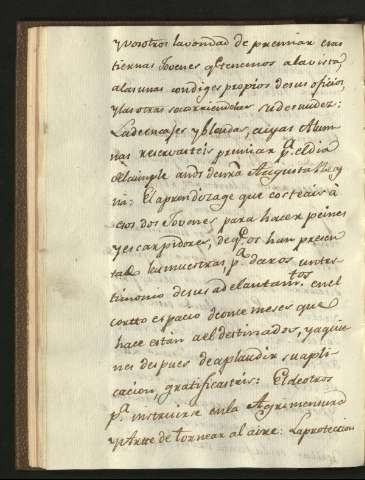 y vosotros la vondad de premiar esas
tiernas Jovenes q.e tenemos a la vista,
a las unas con diges propios de sus oficios,
y las otras socorriendoles su desnudez:
La de encajes y blondas, cuyas Alum-
nas reservasteis premiar p.a el dia
del cumple años de nrâ Augusta Rey-
na: El aprendizage que costeais à
esos dos Jovenes para hacer peines
y escarpidores, de q.e os han presen-
tado las muestras p.a daros un tes-
timonio de sus adelantam.tos en el
cortto espacio de once meses que
hace están a el destinados, y a quie-
nes despues de aplaudir su apli-
cacion, gratificasteis: El de otros
p.a instruirse en la Agrimensura
y Arte de tornear al aire: La proteccion